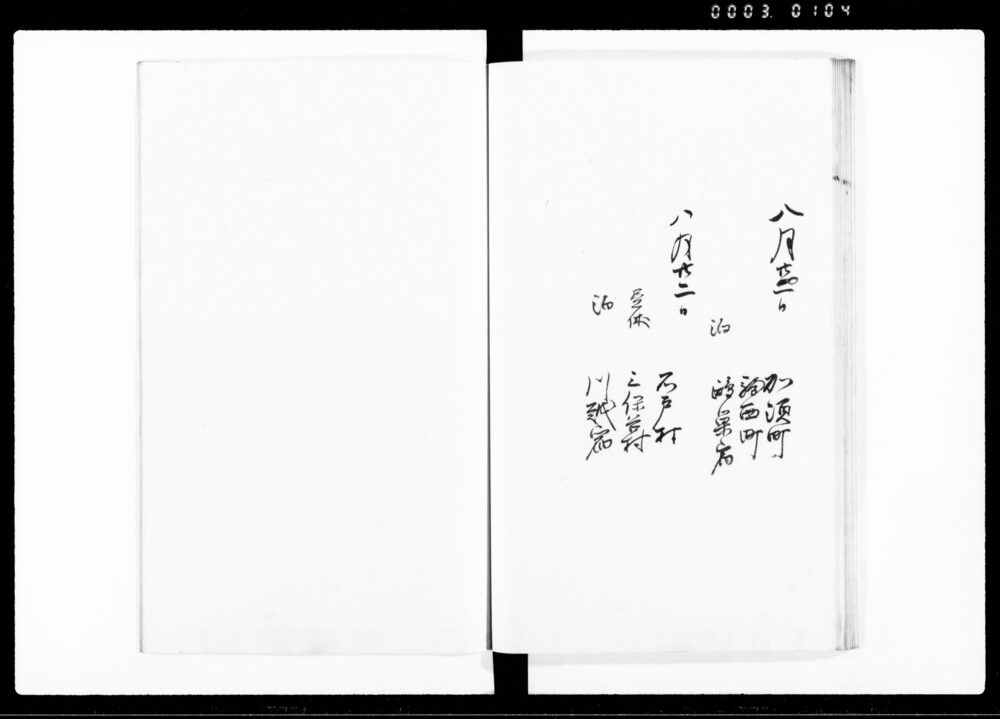 0003. 0104
八月廿一日
加須町
騎西町
泊
鴻巣宿
八月廿二日
石戸村
昼休
三保谷村
泊
川越宿